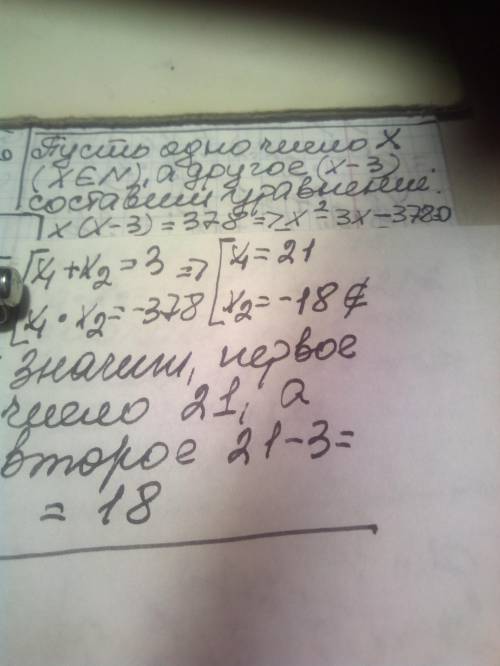 Пусть одно число X
(X∈N), а другое (x-3).
составим уравнение:
x(x-3)=378=>x²-3x-378=0
[x₁+x₂=3 => [x₁=21
[x₁·x₂=-378 [x₂=-18∉
значит, первое
число 21, а
второе 21-3=
=18